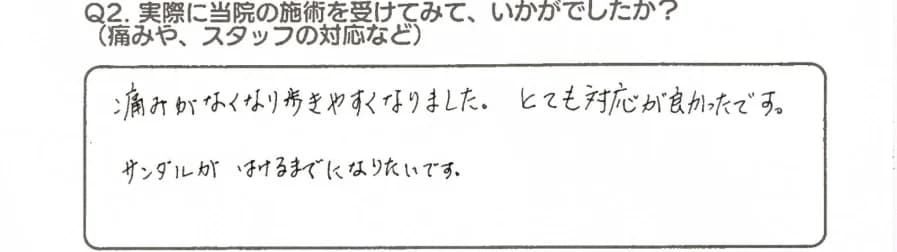 Q2. 実際に当院の施術を受けてみて、いかがでしたか？
（痛みや、スタッフの対応など）
痛みがなくなり歩きやすくなりました。 とても対応が良かったです。
サンダルが はけるまでになりたいです。